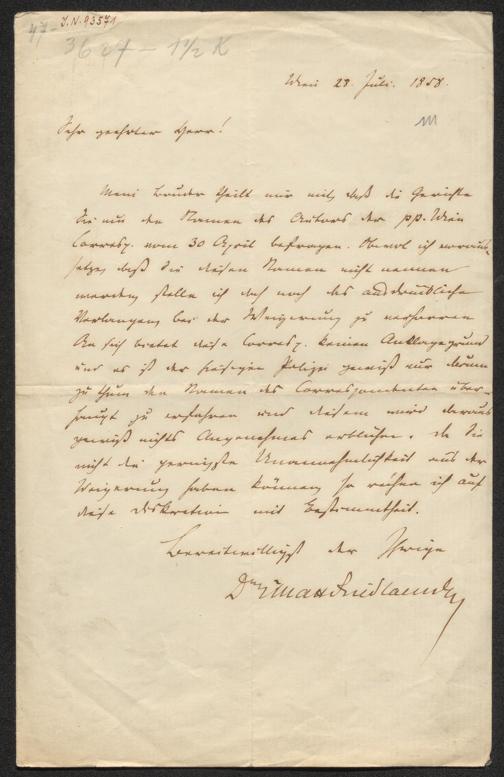 J.N. 93571
47-
3627 - 1 1/2 K
Wien 28. Juli. 1858.
Sehr geehrter Herr!
Mein Bruder theilt mir mit, daß die Gerichte
Sie um den Namen des Autors der pp. Wien
Corresp. vom 30 April befragen. Obwol ich voraus-
setze, daß Sie diesen Namen nicht nennen
werden, stelle ich doch noch das ausdrückliche
Verlangen, bei der Weigerung zu verharren
An sich bietet diese Corresp. keinen Anklagegrund
und es ist der hiesigen Polizei gewiß nur darum
zu thun den Namen des Correspondenten über-
haupt zu erfahren und diesem wird daraus
gewiß nichts Angenehmes erblühen. Da Sie
nicht die geringste Unannehmlichkeit aus der
Weigerung haben können, so rechne ich auf
diese Diskretion mit Bestimmtheit.
Bereitwilligst der Ihrige
Dr Max Friedlaender